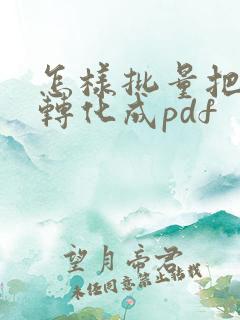 怎樣批量把
轉化成pdf
望月帝君
未任同意禁止转载